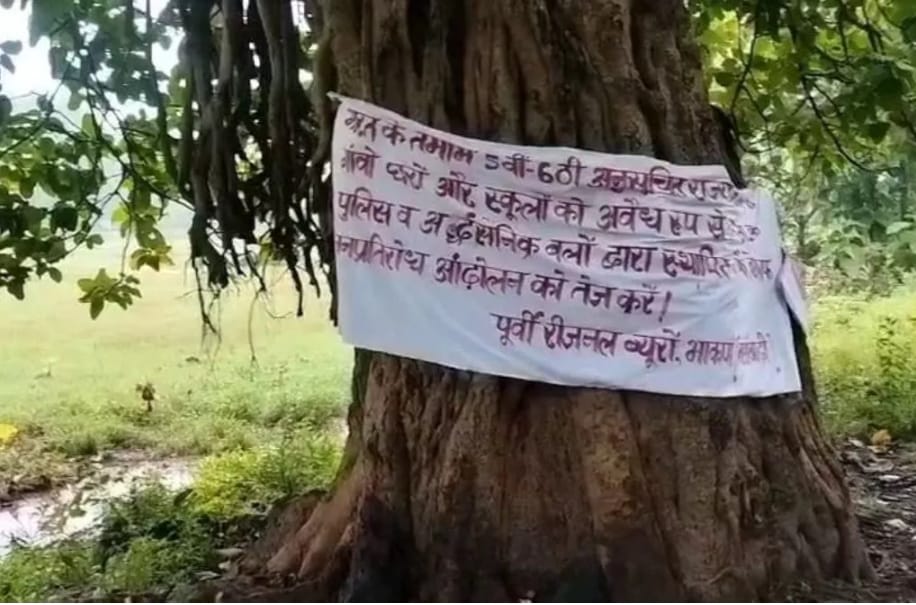 के तमाम 5वीं-6ठी
गांवों घरों और स्कूलों को अवैध रूप से
पुलिस व अर्द्धसैनिक बलों द्वारा स्थापित
आंदोलन को तेज करें!
पूर्वी रीजनल ब्यूरो, भाकपा